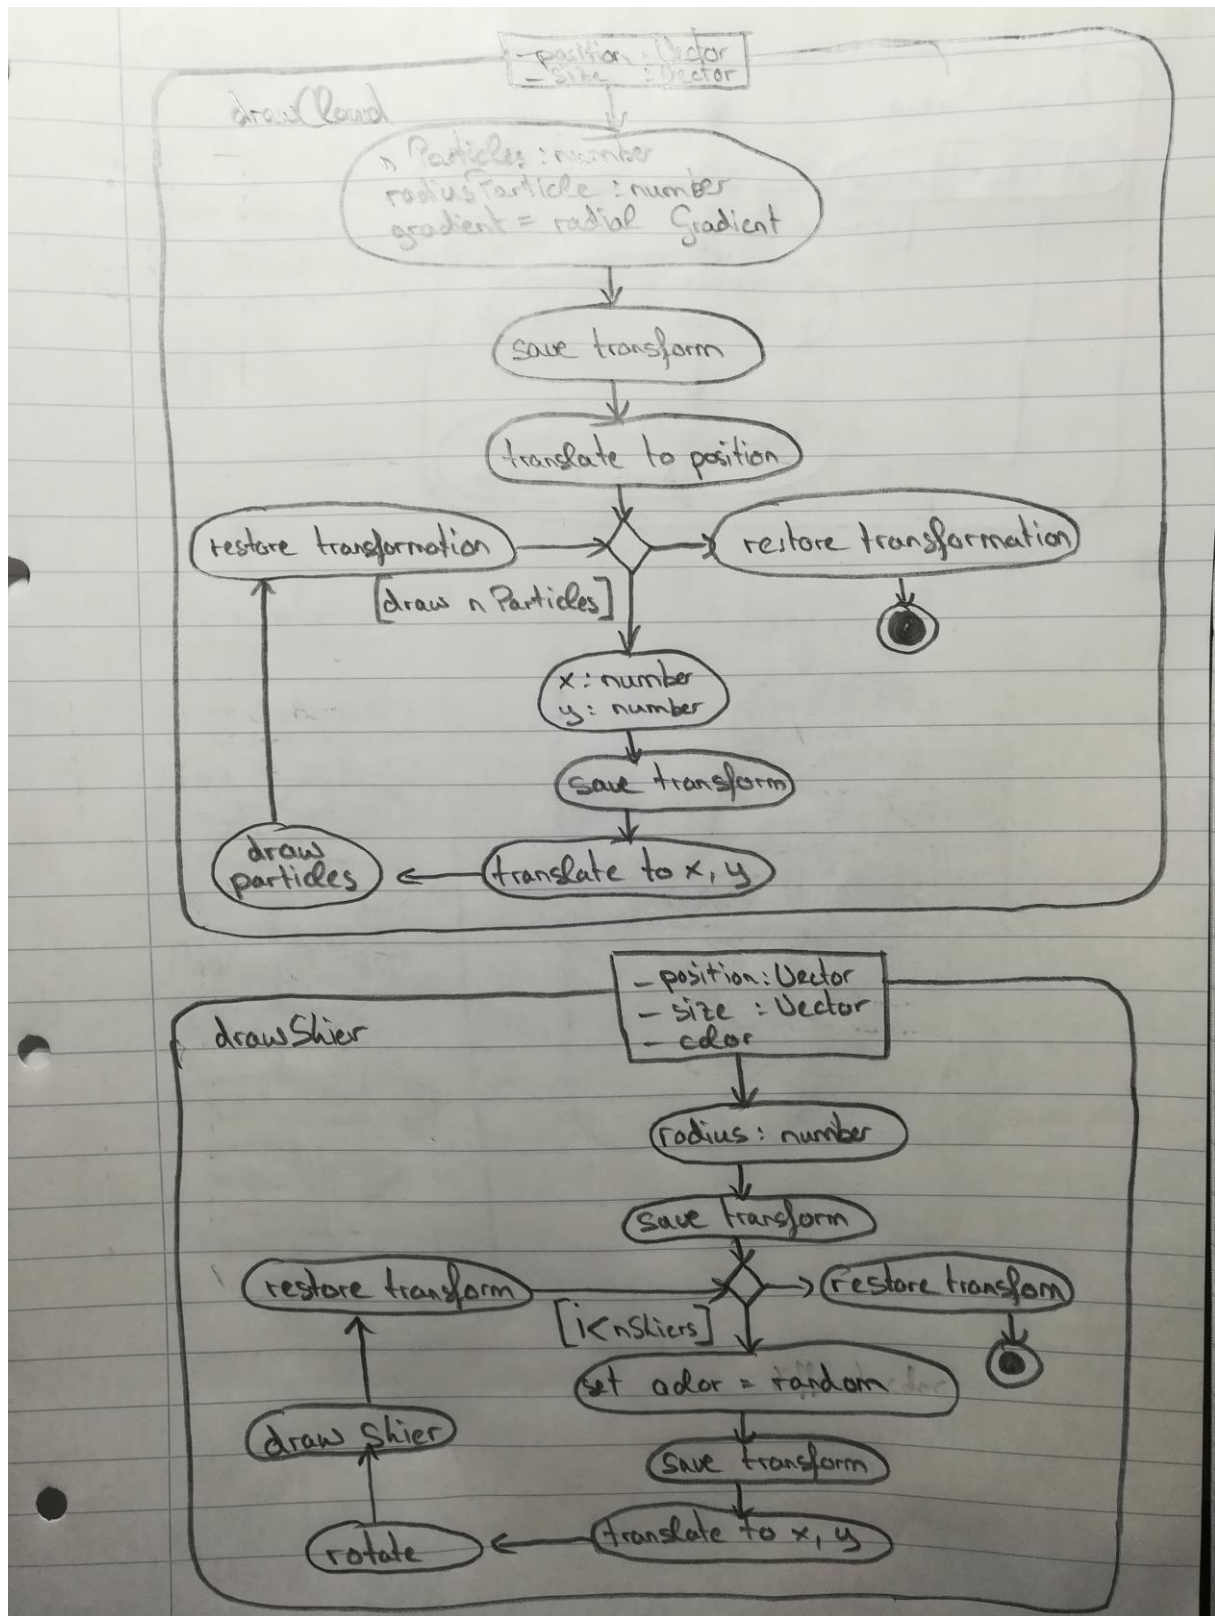 - position : Vector
- size : Vector
drawCloud
n Particles : number
radiusParticle : number
gradient = radial Gradient
save transform
translate to position
restore transformation
restore transformation
[draw n Particles]
x : number
y : number
save transform
draw
particles
translate to x, y
- position : Vector
- size : Vector
- color
drawSkier
radius : number
save transform
restore transform
restore transfom
[i<nSkiers]
set color = random
draw Skier
save transform
translate to x, y
rotate